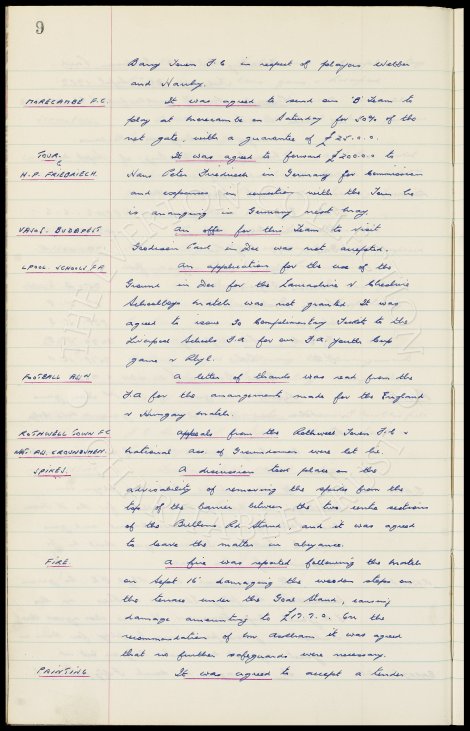 9
Barry Town F.C in respect of players Webber
and Hawley.
MORECAMBE F.C. It was agreed to send our 'B' Team to
play at Morecambe on Saturday for 50% of the
net gate, with a guarantee of £25.0.0.
TOUR. It was agreed to forward £200.0.0 to
H.P. FRIEDRICH. Hans Peter Friedreich in Germany for Commission
and expenses in connection with the Tour he
is arranging in Germany next May.
VASAS. BUDAPEST An offer for this Team to visit
Goodison Park in Dec was not accepted.
LPOOL. SCHOOLS F.A. An application for the use of the
Ground in Dec for the Lancashire v Cheshire
Schoolboys match was not granted It was
agreed to issue 30 Complimentary Tickets to the
Liverpool Schools F.A for our F.A. Youth Cup
game v Rhyl.
FOOTBALL ASS'N A letter of thanks was read from the
F.A for the arrangements made for the England
v Hungary match.
ROTHWELL TOWN F.C Appeals from the Rothwell Town F.C &
NAT. ASS. GROUNDSMEN. National Ass of Groundsmen were let lie.
SPIKES. A discussion took place on the
advisability of removing the spikes from the
top of the barrier between the two sections
of the Bullens Rd Stand, and it was agreed
to leave the matter in abeyance.
FIRE A fire was reported following the match
on Sept 16 damaging the wooden steps on
the terrace under the Goal Stand, causing
damage amounting to £17.7.0. On the
recommendation of it was agreed
that no further safeguards were necessary.
PAINTING It was agreed to accept a tender